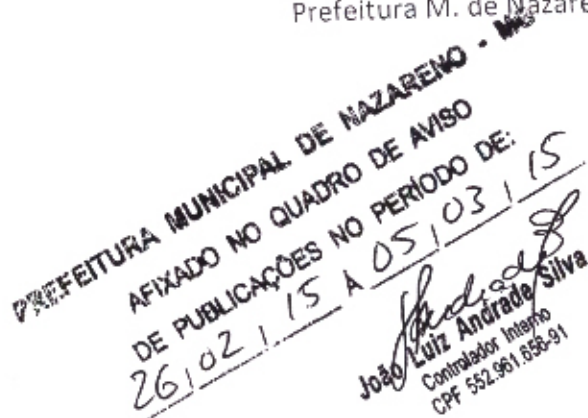 Prefeitura M. de Nazare
PREFEITURA MUNICIPAL DE NAZARENO - MG
AFIXADO NO QUADRO DE AVISO
DE PUBLICAÇÕES NO PERÍODO DE:
26/02/15 A 05/03/15
João Luiz Andrade Silva
Controlador Interno
CPF 552.961.656-91